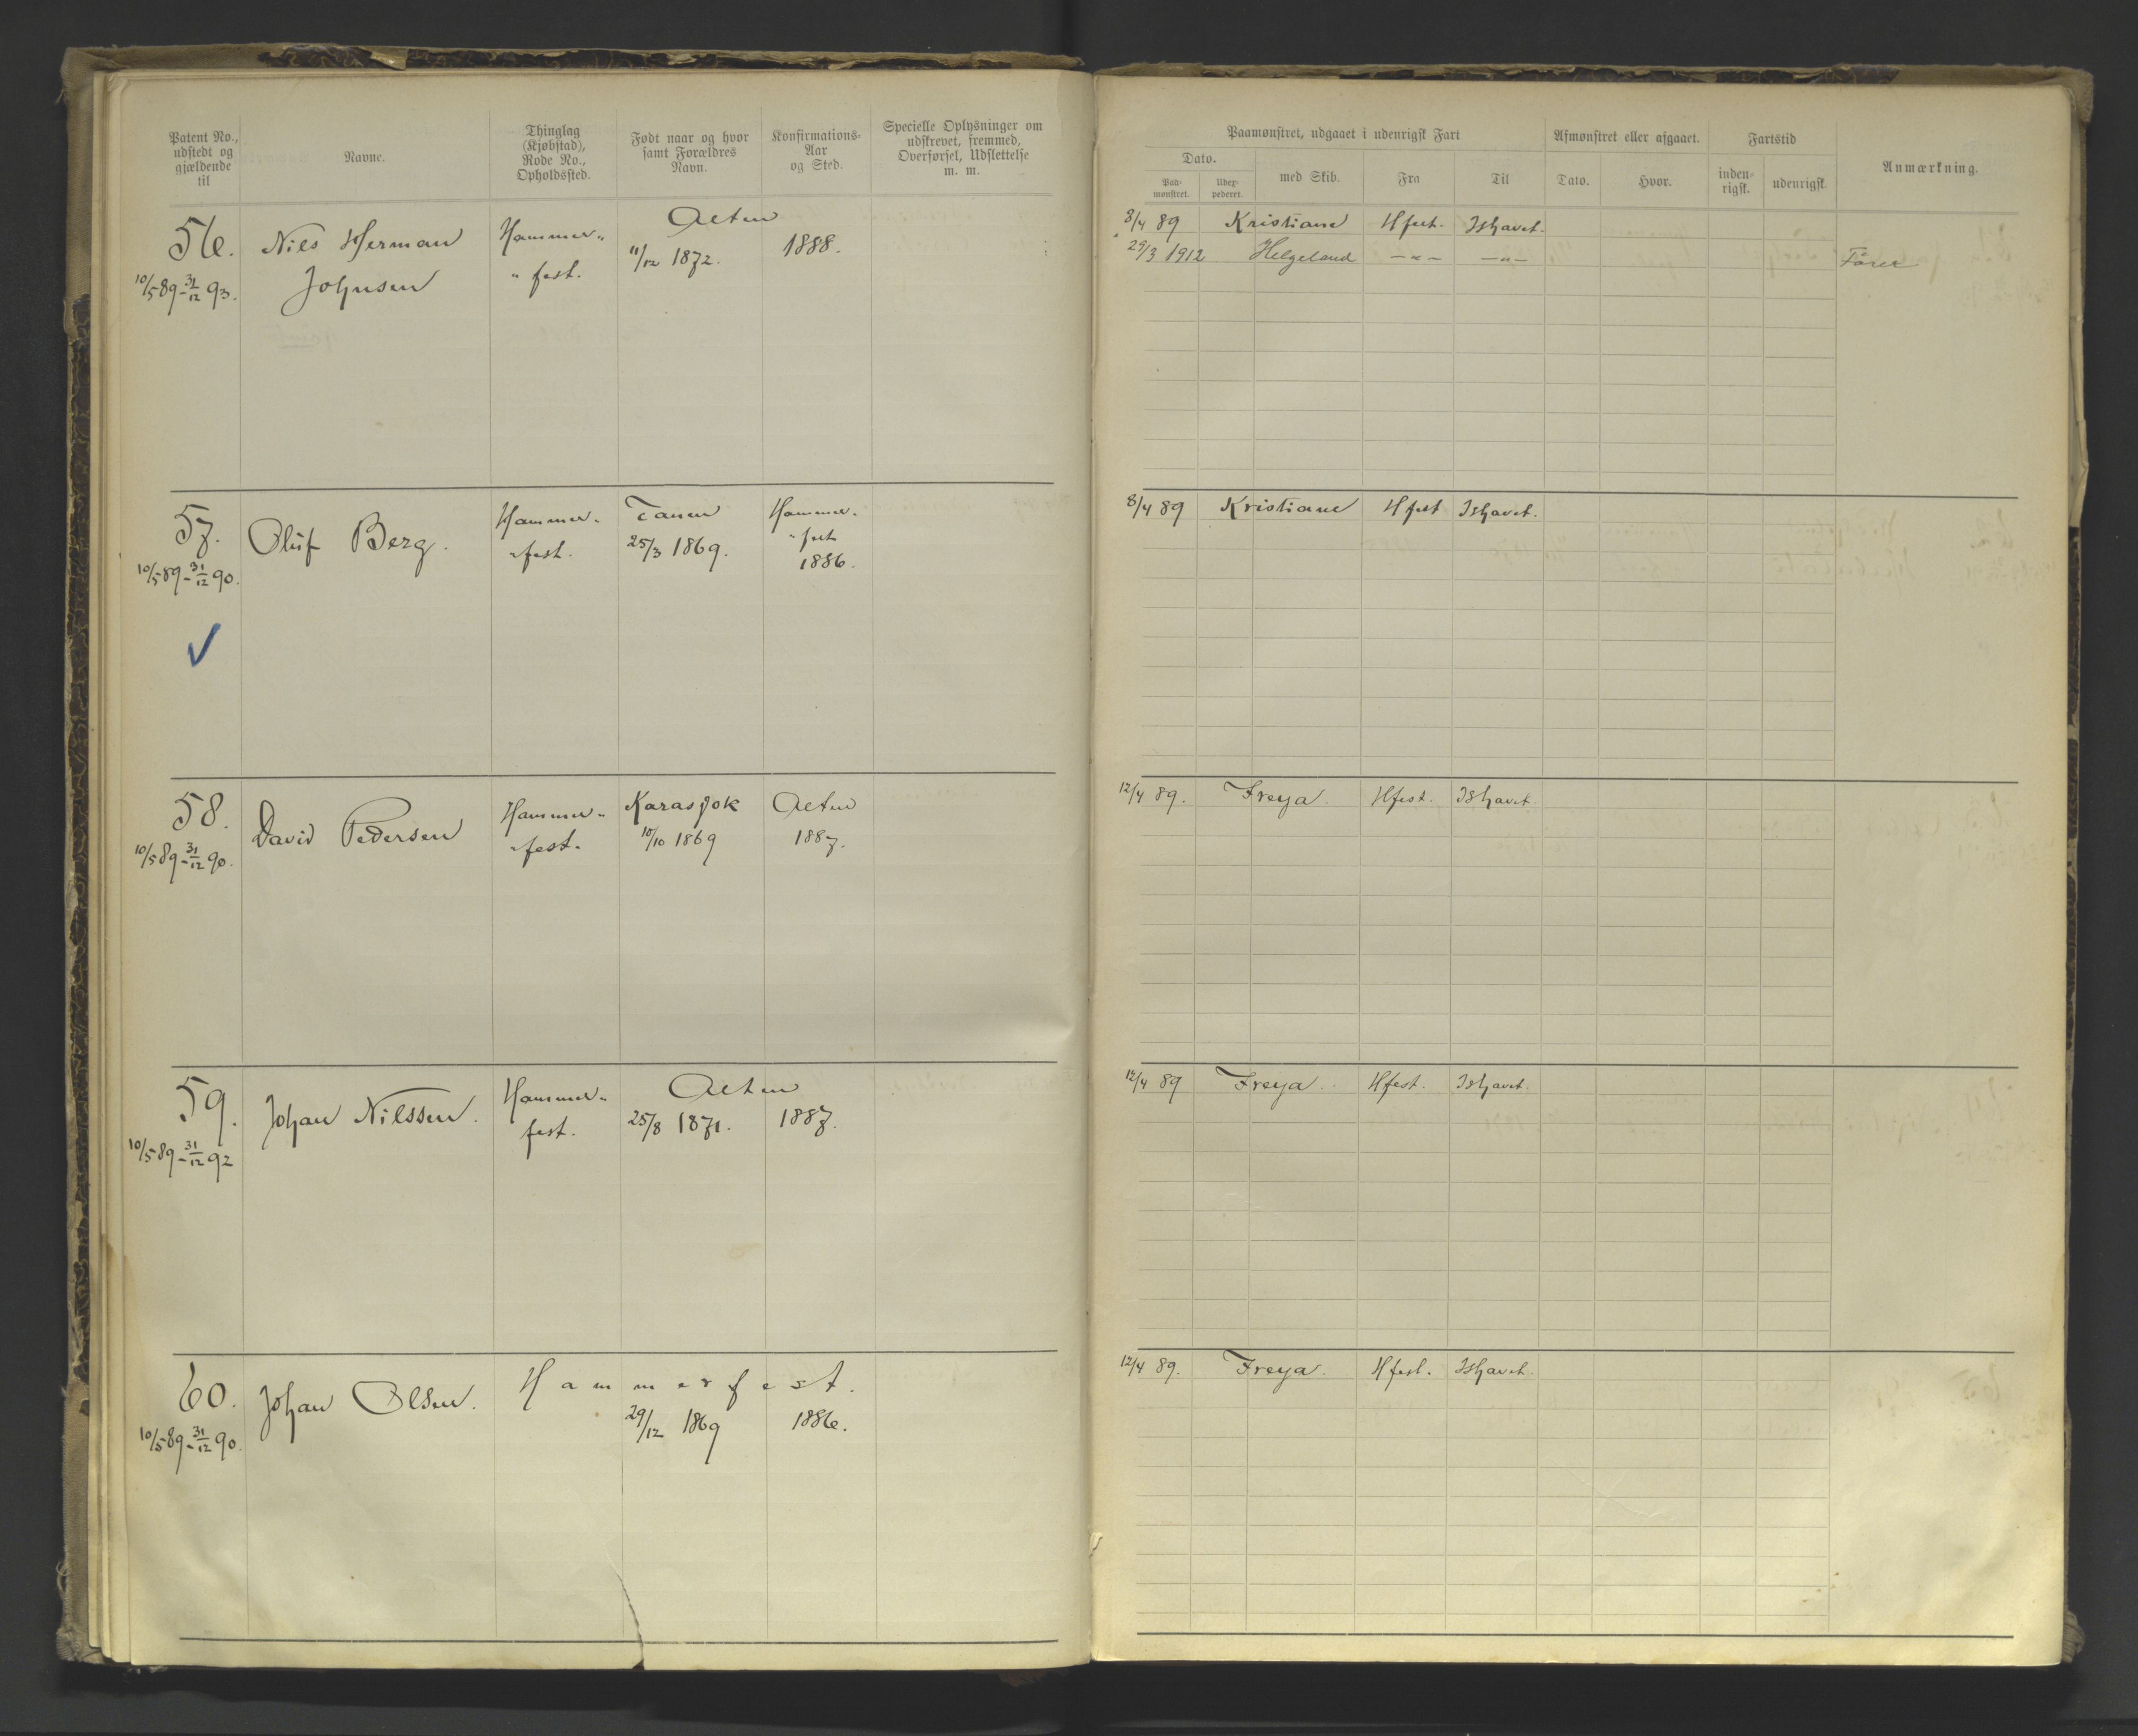 Patent No., udstedt og gjældende til
Navne.
Thinglag (Kjøbstad), Rode No., Opholdssted.
Født naar og hvor samt Forældres Navn.
Konfirmations-Aar og Sted.
Specielle Oplysninger om udskrevet, fremmed, Overførsel, Udslettelse m. m.
Paamønstret, udgaaet i udenrigsk Fart
Afmønstret eller afgaaet.
Fartstid
Anmærkning.
Dato.
Paa-mønstret.
Udex-pederet.
med Skib.
Fra
Til
Dato.
Hvor.
inden-rigsk.
udenrigsk.
56.
10/5 89 - 31/12 93.
Nies Herman
Johnsen
Hammer„
„fest.
Alten
11/12 1872.
1888.
8/4 89 Kristiane Hfest. Ishavet.
29/3 1912 Helgeland —„— —„— Fører
57.
10/5 89 - 31/12 90.
Oluf Berg.
Hammer„
„fest.
Tanen
25/3 1869.
Hammer„
„fest
1886.
8/4 89 Kristiane Hfest Ishavet.
58.
10/5 89 - 31/12 90.
David Pedersen
Hammer„
„fest.
Karasjok
10/10 1869
Alten
1887.
12/4 89. Freya. Hfest. Ishavet.
59.
10/5 89 - 31/12 92
Johan Nilssen.
Hammer„
fest.
Alten
25/8 1871.
1887.
12/4 89 Freya. Hfest. Ishavet.
60.
10/5 89 - 31/12 90.
Johan Olsen.
Hammerfest.
29/12 1869
1886.
12/4 89. Freya. Hfest. Ishavet.